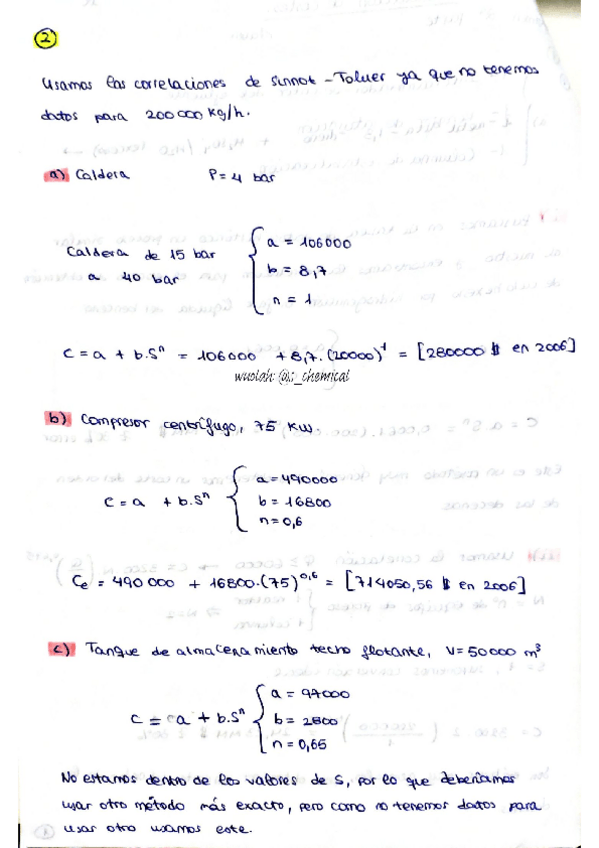 2
Usamos las correlaciones de Sinnot - Toluer ya que no tenemos
datos para 200 000 kg/h.
a) Caldera P = 4 bar
Caldera de 15 bar a = 106000
a 40 bar b = 8,7
n = 1
C = a + b.Sⁿ = 106000 + 8,7.(20000)¹ = [280000 $ en 2006]
wuolah: @s_chemical
b) Compresor centrífugo, 75 kW.
a = 490000
C = a + b.Sⁿ b = 16800
n = 0,6
Ce = 490 000 + 16800.(75)^0,6 = [714050,56 $ en 2006]
c) Tanque de almacenamiento techo flotante, V = 50000 m³
a = 94000
C = a + b.Sⁿ b = 2800
n = 0,65
No estamos dentro de los valores de S, por lo que deberíamos
usar otro método más exacto, pero como no tenemos datos para
usar otro usamos este.